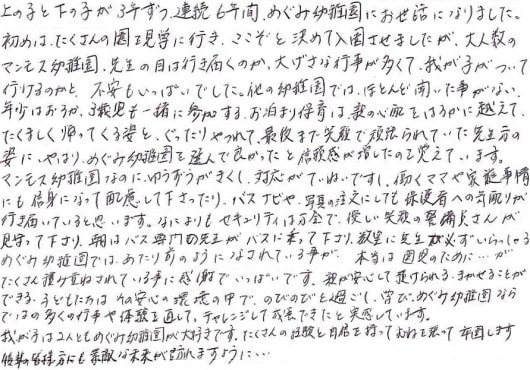 上の子と下の子が3年ずつ、連続6年間、めぐみ幼稚園にお世話になりました。
初めは、たくさんの園を見学に行き、ここぞと決めて入園させましたが、大人数の
マンモス幼稚園、先生の目は行き届くのか、大げさな行事が多くて、我が子がついて
行けるのかと、不安もいっぱいでした。他の幼稚園では、ほとんど聞いた事がない、
年少はおろか、3歳児も一緒に参加する、お泊まり保育は、親の心配をはるかに越えて、
たくましく帰ってくる姿と、ぐったりやつれて、最後まで笑顔で頑張られていた先生方の
姿に、やはり、めぐみ幼稚園を選んで良かったと信頼感が増したのを覚えています。
マンモス幼稚園なのに、ゆうずうがきくし、対応がていねいですし、働くママや家庭事情
にも親身になって配慮して下さったり、バスナビや、写真の注文にしても保護者への気配りが
行き届いていると思います。なによりもセキュリティは万全で、優しい笑顔の警備員さんが
見守って下さり、朝はバス専門の先生がバスに乗って下さり、教室に先生が必ずいらっしゃる
めぐみ幼稚園では、あたり前のようになされている事が、本当は園児のために…が
たくさん積み重ねされている事に感謝でいっぱいです。親が安心して預けられる、まかせることが
できる、子どもたちはその安心の環境の中で、のびのびと過ごし、学び、めぐみ幼稚園なら
ではの多くの行事や体験を通して、チャレンジして成長できたと実感しています。
我が子は2人ともめぐみ幼稚園が大好きです。たくさんの経験と自信を持って胸を張って卒園します
後輩の皆様方にも素敵な未来が訪れますように…